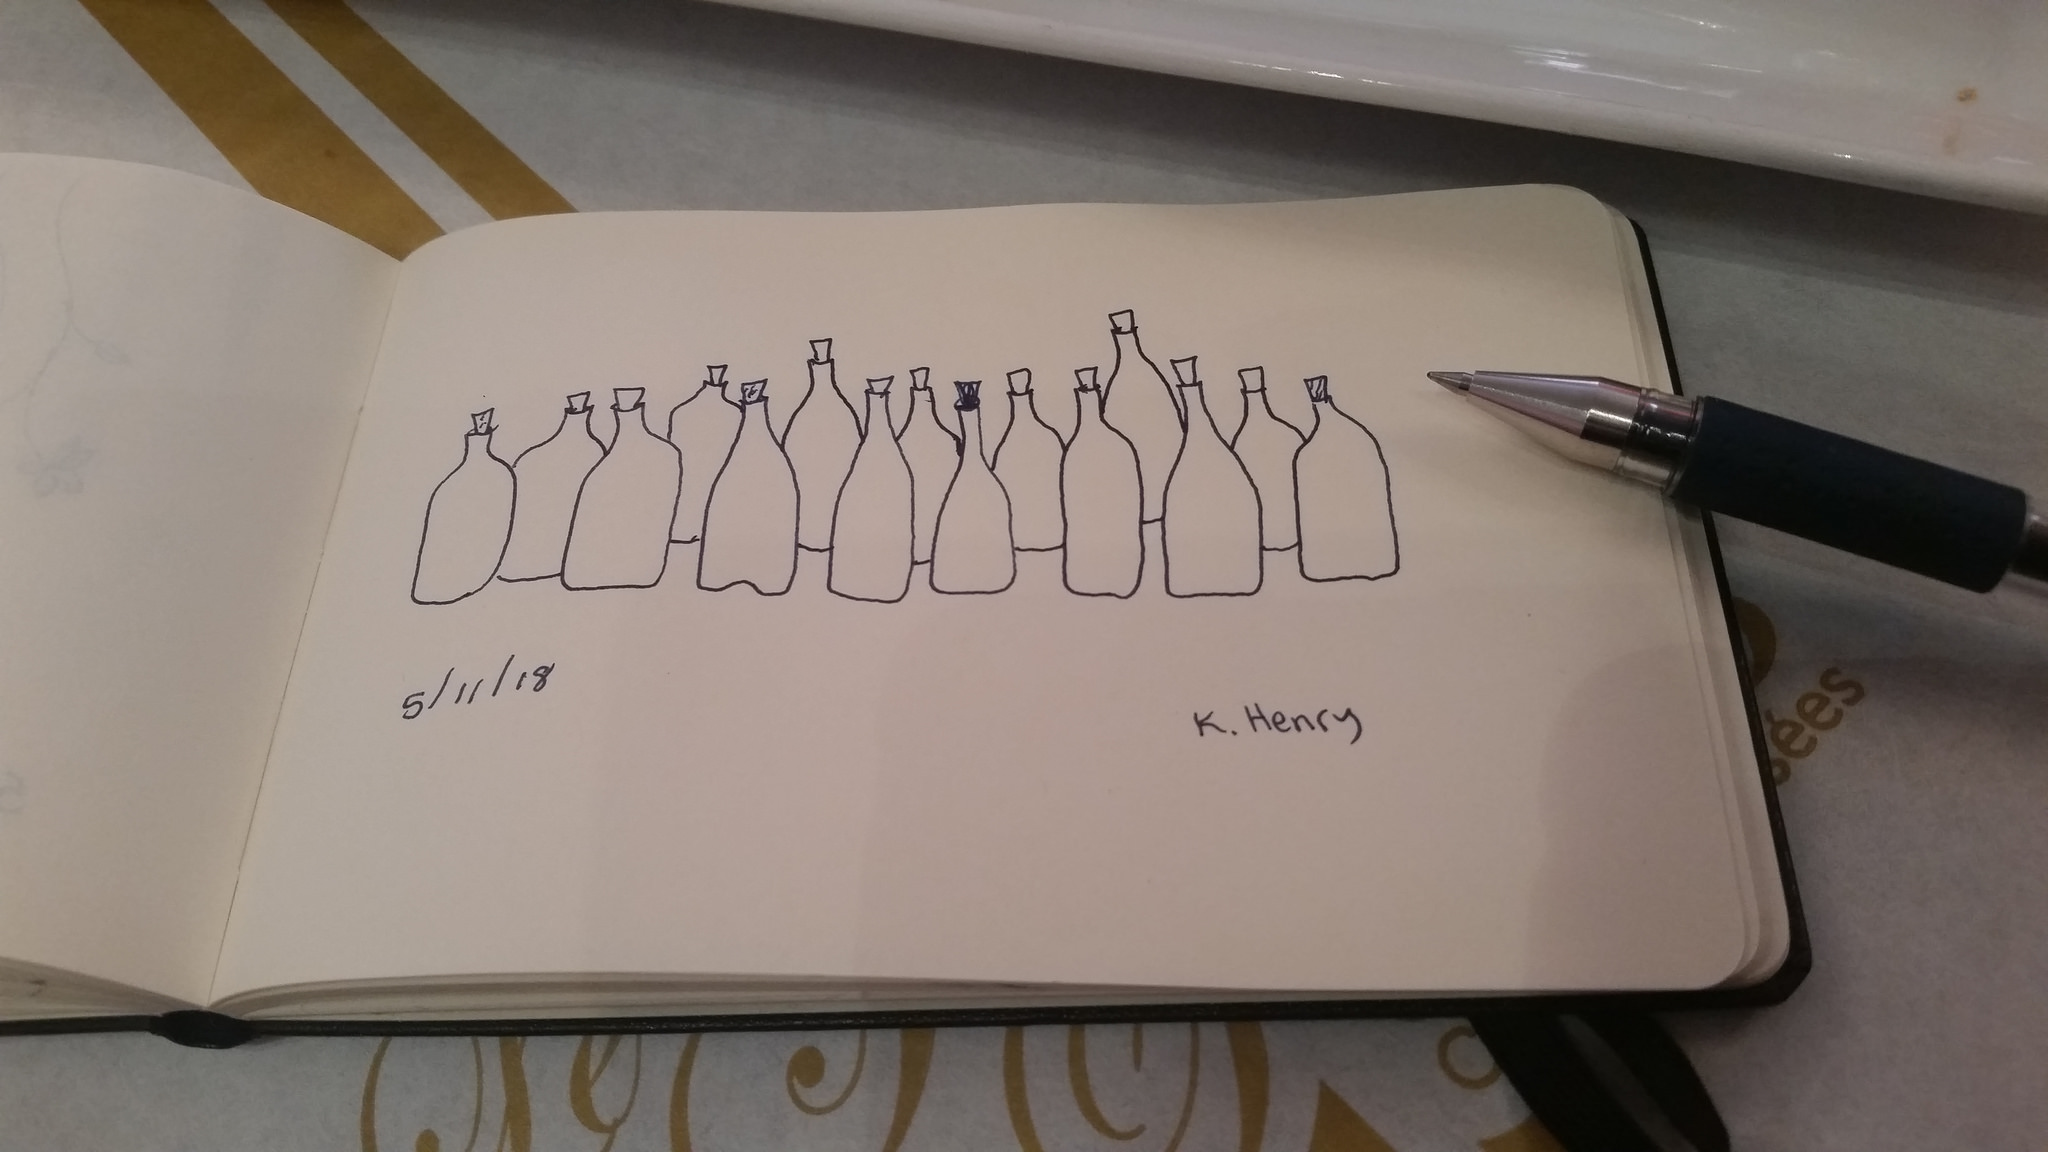 5/11/18
K. Henry
ées